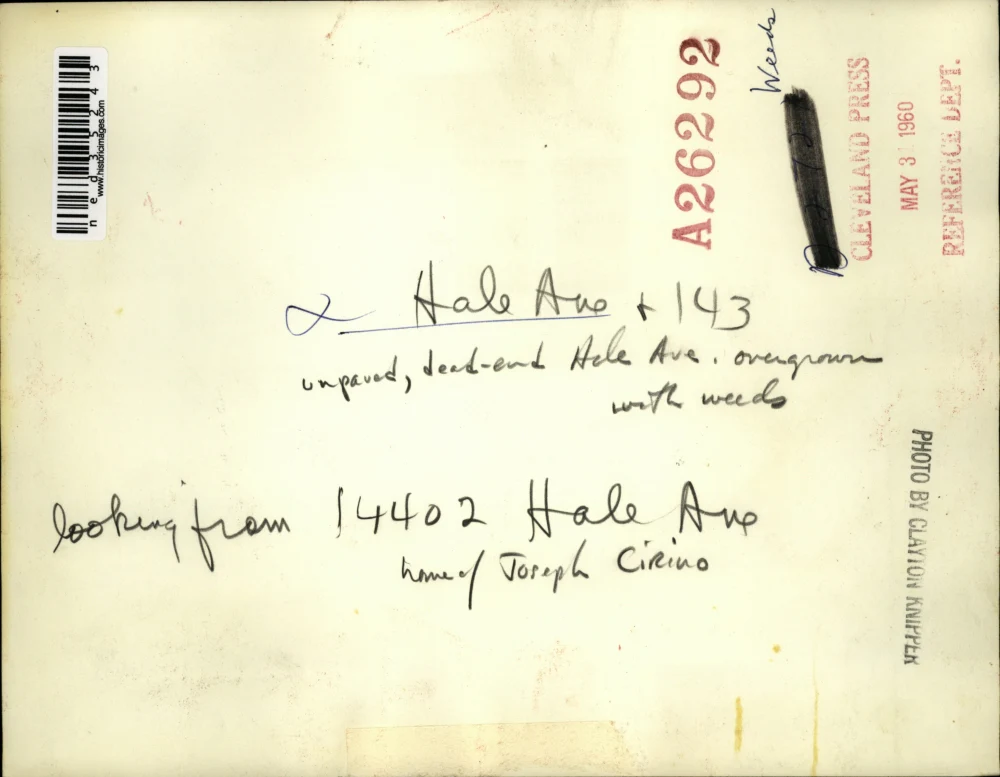 n e d 3 5 2 4 3
www.historicimages.com
A26292
Weeds
CLEVELAND PRESS
MAY 31 1960
REFERENCE DEPT.
Hale Ave + 143
unpaved, dead-end Hale Ave. overgrown
with weeds
looking from 14402 Hale Ave
home of Joseph Cirino
PHOTO BY CLAYTON KNIPPER